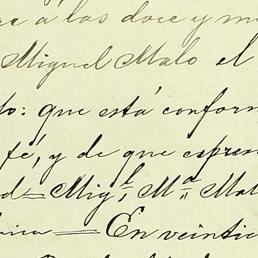 a las doce y m
Miguel Malo el
to: que está conform
fé, y de que expres
d= Mig.l M.a Mal
rica = En veintic